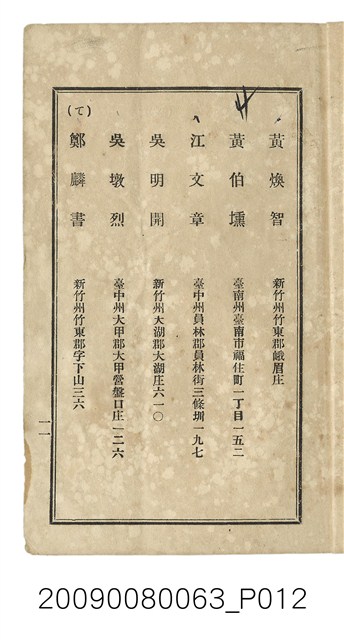 黃煥智　新竹州竹東郡峨眉庄
黃伯壎　臺南州臺南市福住町一丁目一五二
江文章　臺中州員林郡員林街三條圳一九七
吳明開　新竹州大湖郡大湖庄六一〇
吳墩烈　臺中州大甲郡大甲營盤口庄一二六
(て)
鄭麟書　新竹州竹東郡字下山三六
一一
20090080063_P012